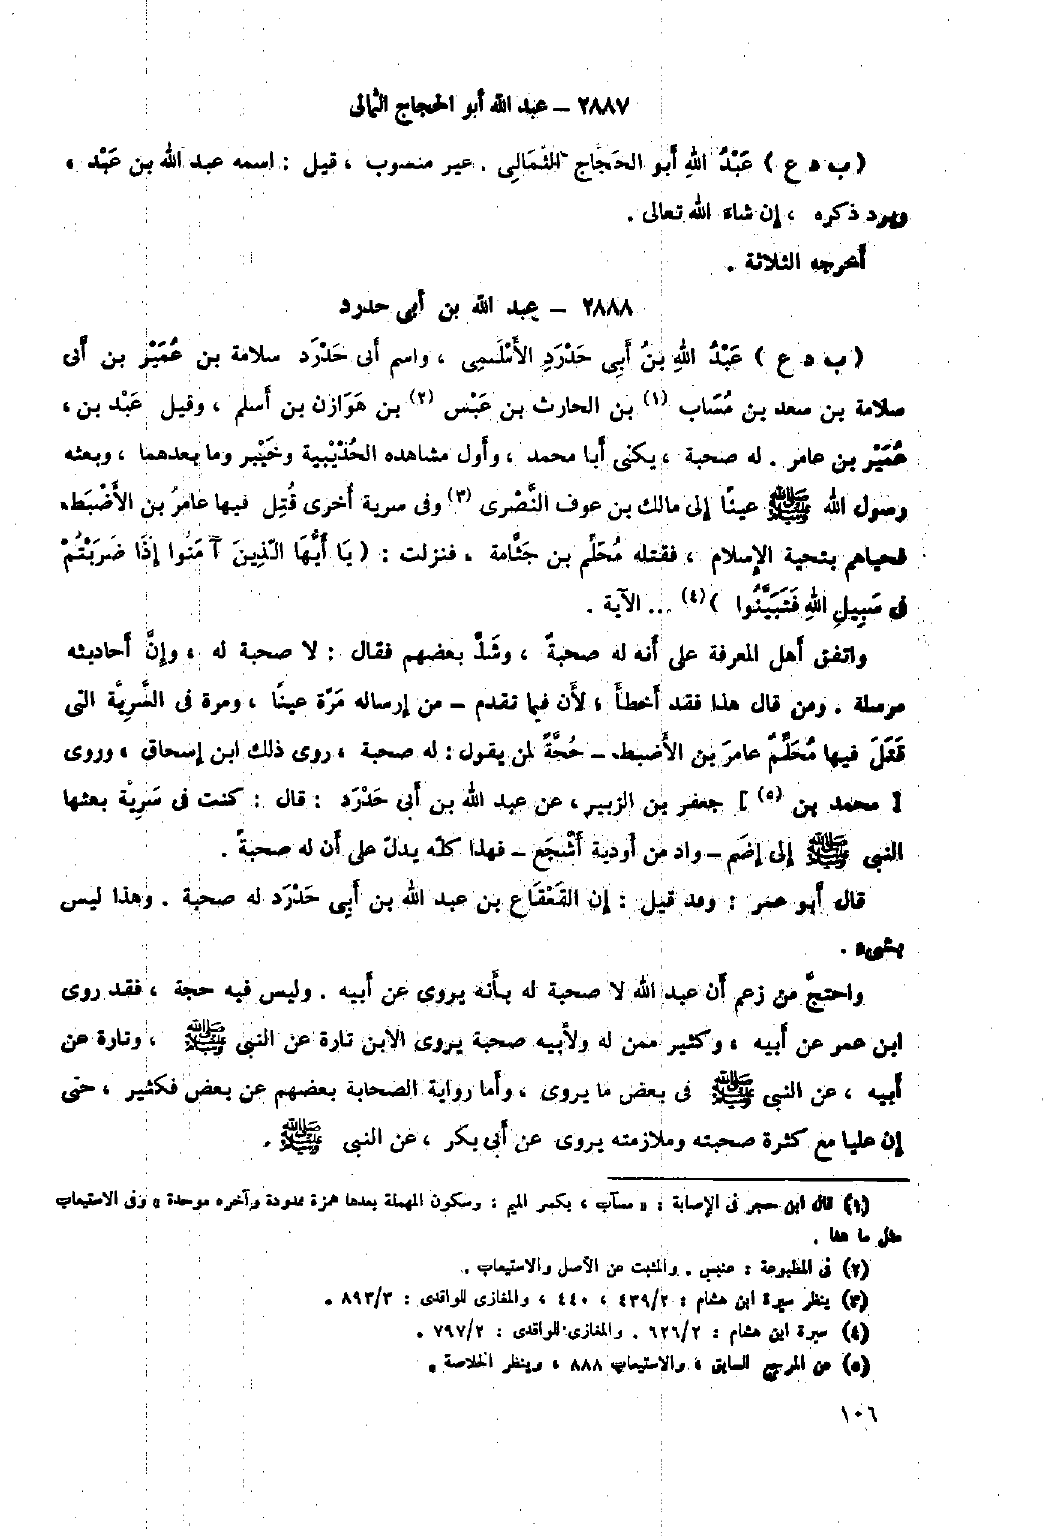 ٢٨٨٧ – عبد الله أبو الحجاج الثمالى
( ب د ع ) عَبْدُ اللهِ أبو الحَجَّاج الثُّمَالِى . غير منصوب ، قيل : اسمه عبد الله بن عَبْد ،
ويرد ذكره ، إن شاء الله تعالى .
أخرجه الثلاثة .
٢٨٨٨ – عبد الله بن أبى حدرد
( ب د ع ) عَبْدُ اللهِ بنُ أبِى حَدْرَدِ الأَسْلَمِى ، واسم أبى حَدْرَد سلامة بن عُمَيْر بن أبى
سلامة بن سعد بن مُسَاب (١) بن الحارث بن عَبْس (٢) بن هَوَازن بن أسلم ، وقيل عَبْد بن ،
عُمَيْر بن عامر . له صحبة ، يكنى أبا محمد ، وأول مشاهده الحُدَيْبية وخَيْبر وما بعدهما ، وبعثه
رسول الله ﷺ عينًا إلى مالك بن عوف النَّصْرى (٣) وفى سرية أخرى قُتِل فيها عامرُ بن الأَضْبَط،
فحياهم بتحية الإسلام ، فقتله مُحَلِّم بن جَثَّامة ، فنزلت : ( يَا أَيُّهَا الّذِينَ آمَنُوا إذَا ضَرَبْتُمْ
فى سَبِيلِ اللهِ فَتَبَيَّنُوا )(٤) ... الآية .
واتفق أهل المعرفة على أنه له صحبةٌ ، وشَذَّ بعضهم فقال : لا صحبة له ، وإنَّ أحاديثه
مرسلة . ومن قال هذا فقد أخطأ ، لأن فيما تقدم – من إرساله مَرّة عينًا ، ومرة فى السَّرِيَّة التى
قَتَلَ فيها مُحَلِّمٌ عامرَ بن الأَضبط – حُجَّةً لمن يقول : له صحبة ، روى ذلك ابن إسحاق ، وروى
[ محمد بن (٥) ] جعفر بن الزبير ، عن عبد الله بن أبى حَدْرَد : قال : كنت فى سَرِيَّة بعثها
النبى ﷺ إلى إضَم – واد من أودية أَشْجَع – فهذا كلّه يدلّ على أن له صحبةً .
قال أبو عمر : وقد قيل : إن القَعْقَاع بن عبد الله بن أبِى حَدْرَد له صحبة . وهذا ليس
بشىء .
واحتجَّ من زعم أن عبد الله لا صحبة له بأنه يروى عن أبيه . وليس فيه حجة ، فقد روى
ابن عمر عن أبيه ، وكثير ممن له ولأبيه صحبة يروى الابن تارة عن النبى ﷺ ، وتارة عن
أبيه ، عن النبى ﷺ فى بعض ما يروى ، وأما رواية الصحابة بعضهم عن بعض فكثير ، حتى
إن عليا مع كثرة صحبته وملازمته يروى عن أبى بكر ، عن النبى ﷺ .
(١) قال ابن حجر فى الإصابة : « مسآب ، بكسر الميم : وسكون المهملة بعدها همزة ممدودة وآخره موحدة » وفى الاستيعاب
مثل ما هنا .
(٢) فى المطبوعة : عنبس . والمثبت عن الأصل والاستيعاب .
(٣) ينظر سيرة ابن هشام : ٤٣٩/٢ ، ٤٤٠ ، والمغازى للواقدى : ٨٩٣/٣ .
(٤) سيرة ابن هشام : ٦٢٦/٢ . والمغازى للواقدى : ٧٩٧/٢ .
(٥) عن المرجع السابق ، والاستيعاب ٨٨٨ ، وينظر الخلاصة .
١٠٦